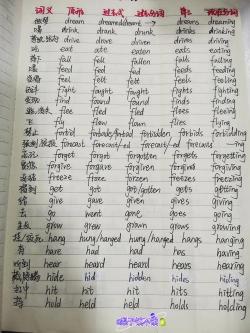 词义 原形 过去式 过去分词 单三 现在分词
做梦 dream dreamed/dreamt → dreams dreaming
喝 drink drank drunk drinks drinking
drive drove driven drives driving
吃 eat ate eaten eats eating
落下 fall fell fallen falls falling
喂 feed fed fed feeds feeding
feel felt felt feels feeling
fight fought fought fights fighting
发现 find found found finds finding
flee fled fled flees fleeing
飞 fly flew flown flies flying
禁止 forbid forbade/forbad forbidden forbids forbidding
forecast forecast/-ed forecast/-ed forecasts —ing
忘记 forget forgot forgotten forgets forgetting
原谅 forgive forgave forgiven forgives forgiving
freeze froze frozen freezes freezing
得到 get got got/gotten gets getting
给 give gave given gives giving
去 go went gone goes going
grow grew grown grows growing
hang hung/hanged hung/hanged hangs hanging
有 have had had has having
听到 hear heard heard hears hearing
hide hid hidden hides hiding
打中 hit hit hit hits hitting
hold held held holds holding